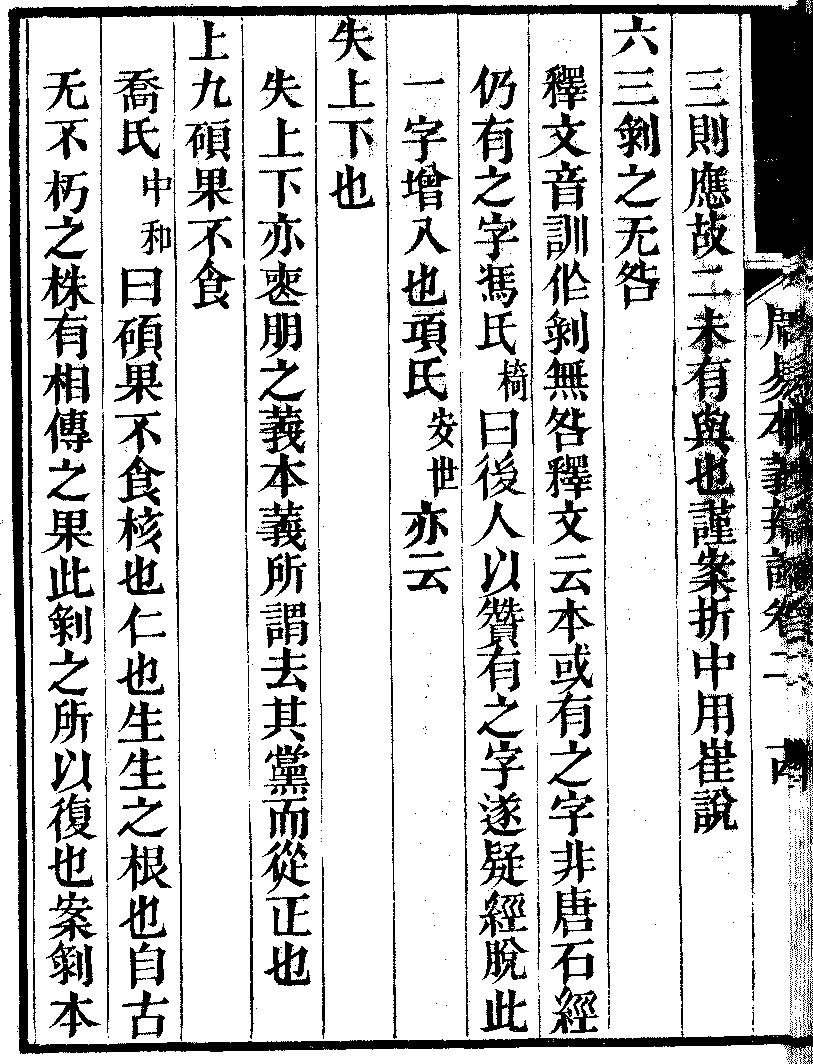 周易本義辨証卷二
三則應故二未有與也謹案折中用崔說
六三剝之无咎
釋文音訓作剝無咎釋文云本或有之字非唐石經
仍有之字馮氏椅曰後人以贊有之字遂疑經脫此
一字增入也項氏安世亦云
失上下也
失上下亦喪朋之義本義所謂去其黨而從正也
上九碩果不食
喬氏中和曰碩果不食核也仁也生生之根也自古
无不朽之株有相傳之果此剝之所以復也案剝本